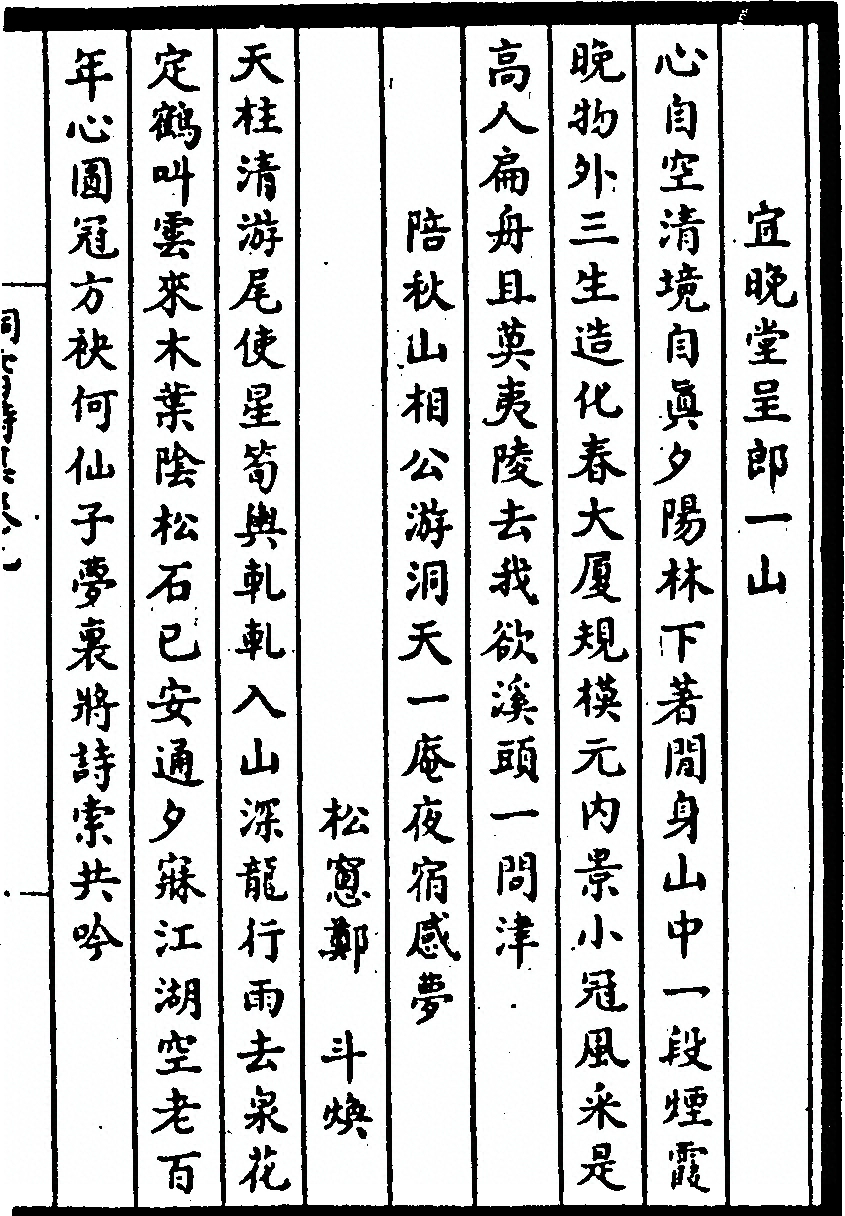 宜晚堂呈郎一山
心自空清境自眞夕陽林下著閒身山中一段煙霞
晚物外三生造化春大厦規模元内景小冠風采是
高人扁舟且莫夷陵去我欲溪頭一問津
陪秋山相公游洞天一庵夜宿感夢
松窻鄭　斗煥
天柱清游尾使星筍輿軋軋入山深龍行雨去泉花
定鶴叫雲來木葉陰松石已安通夕寐江湖空老百
年心圓冠方袂何仙子夢裏將詩索共吟